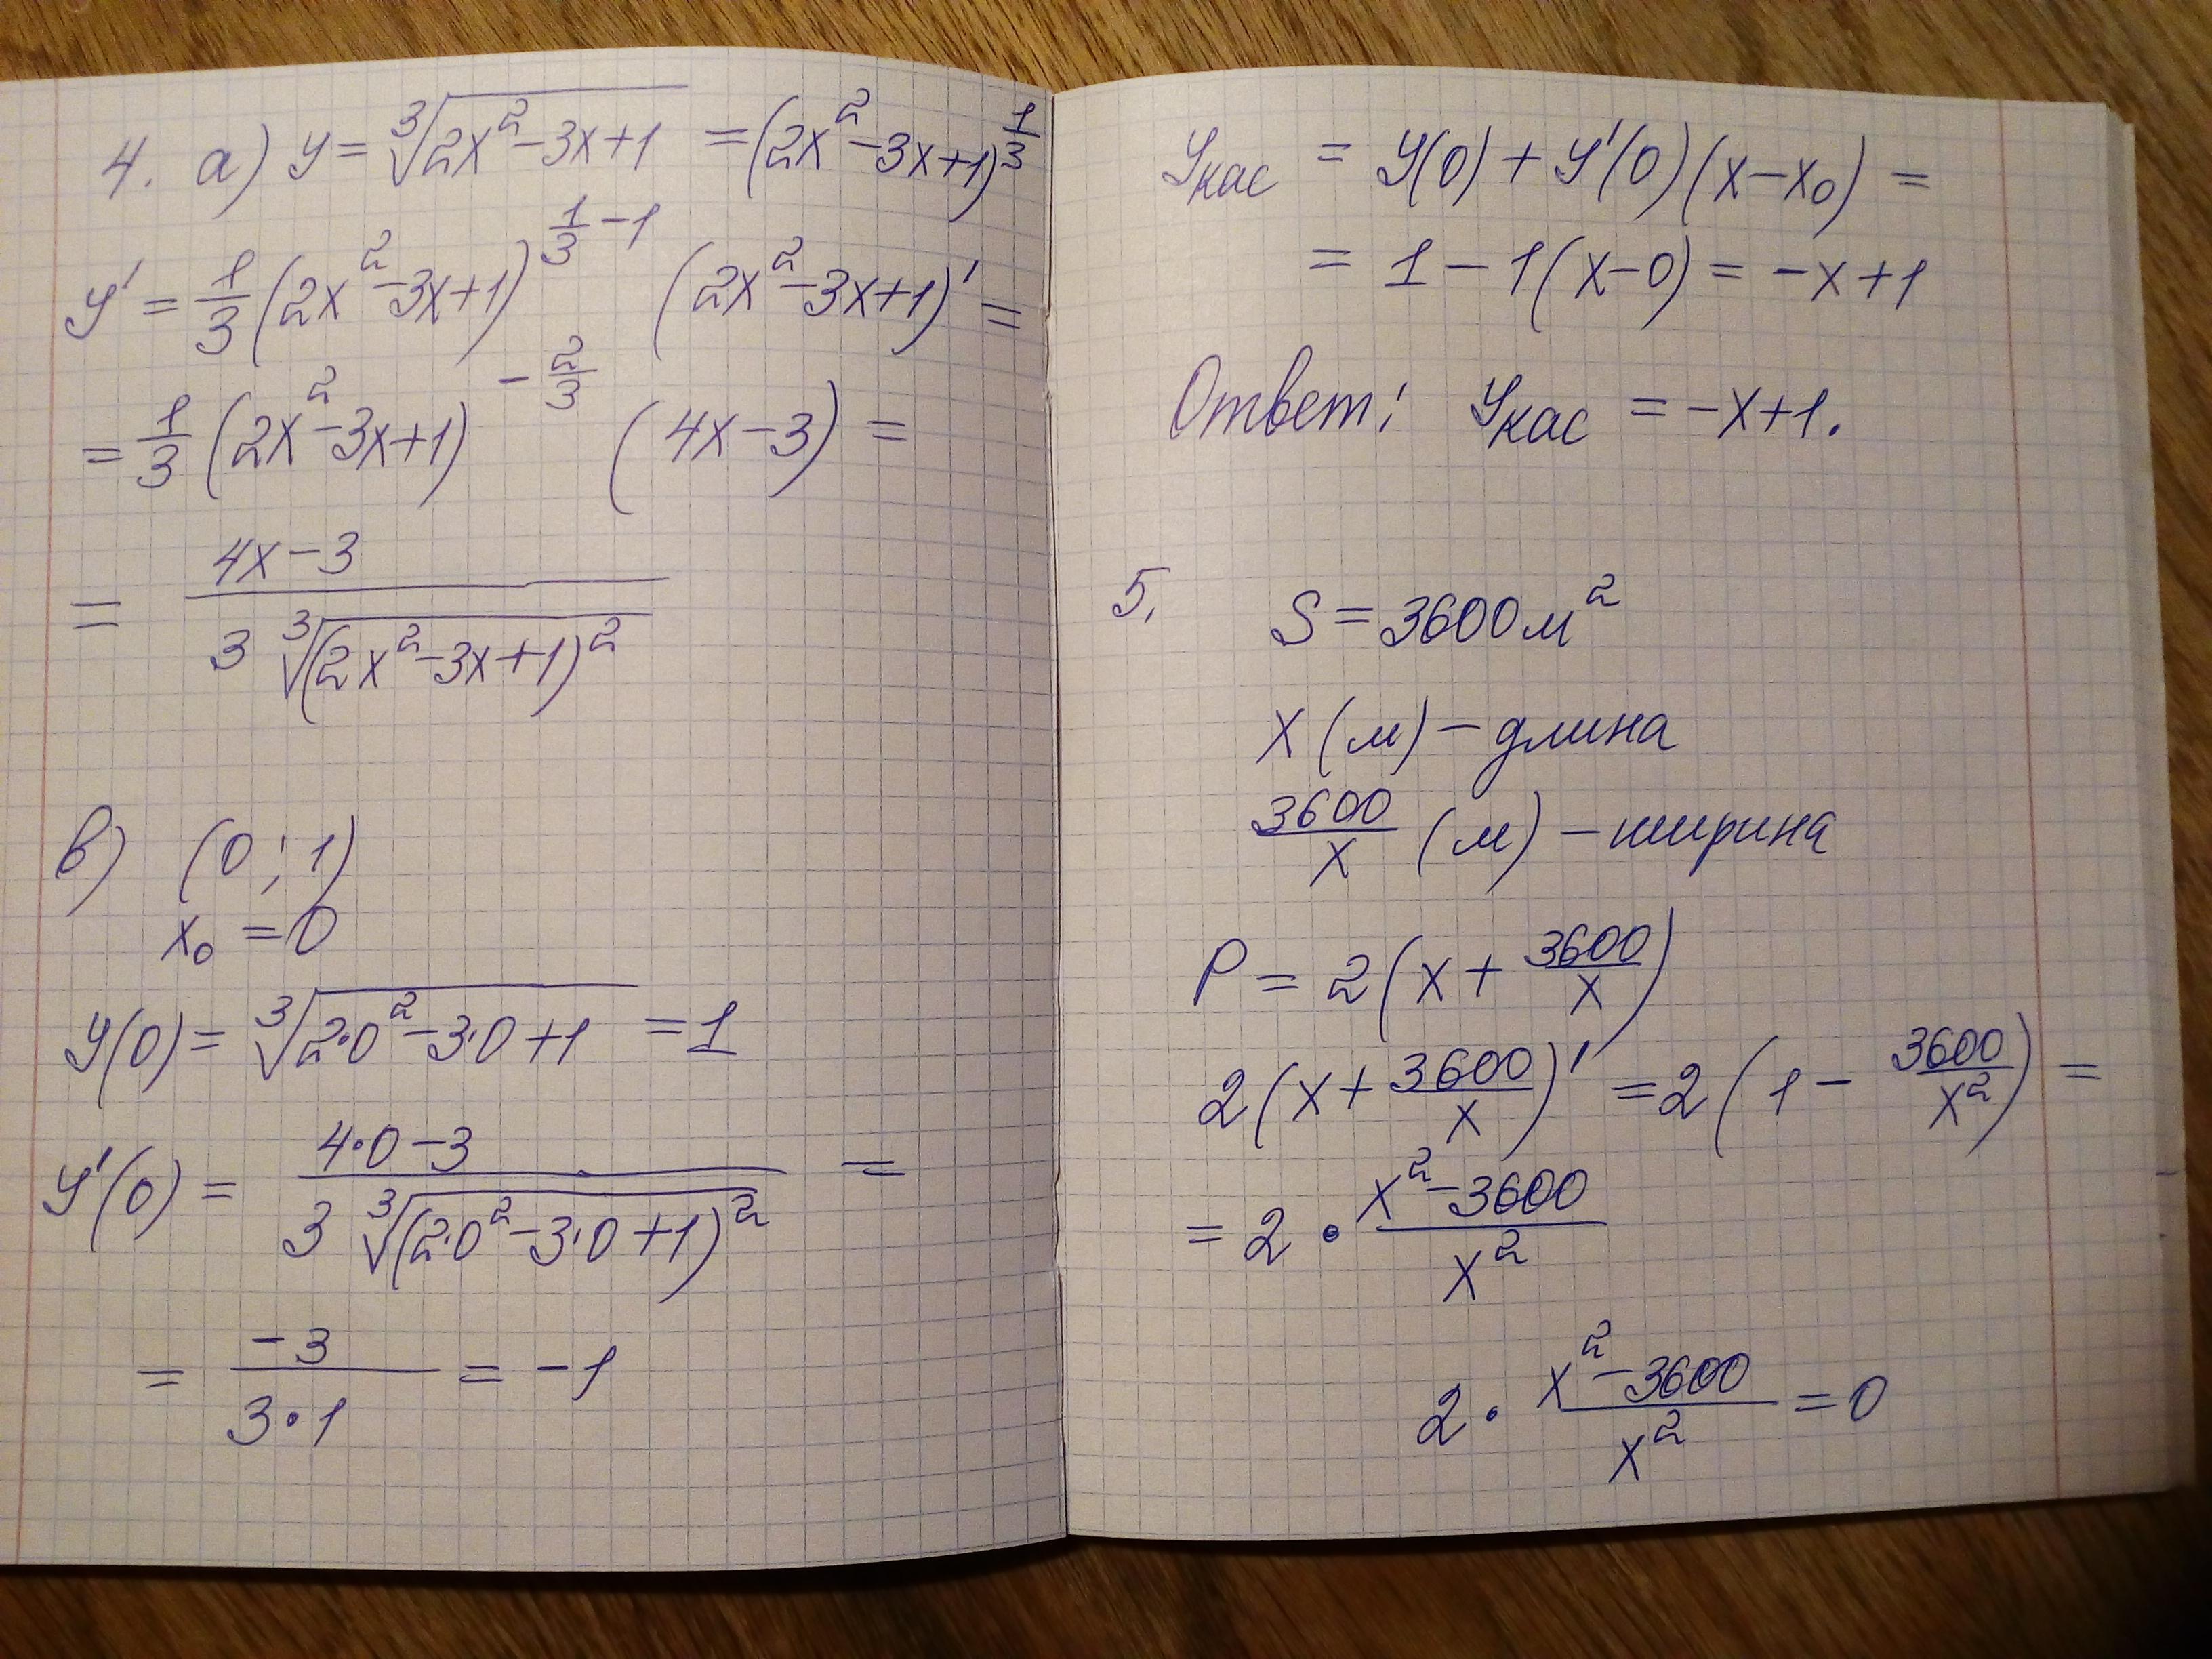 4. а) y = ∛(2x² - 3x + 1) = (2x² - 3x + 1)^(1/3)
y' = 1/3 (2x² - 3x + 1)^(1/3 - 1) (2x² - 3x + 1)' =
= 1/3 (2x² - 3x + 1)^(-2/3) (4x - 3) =
= (4x - 3) / (3 ∛((2x² - 3x + 1)²))
в) (0; 1)
x₀ = 0
y(0) = ∛(2·0² - 3·0 + 1) = 1
y'(0) = (4·0 - 3) / (3 ∛((2·0² - 3·0 + 1)²)) =
= -3 / (3·1) = -1
yкас = y(0) + y'(0)(x - x₀) =
= 1 - 1(x - 0) = -x + 1
Ответ: yкас = -x + 1.
5. S = 3600 м²
x (м) - длина
3600/x (м) - ширина
P = 2(x + 3600/x)
2(x + 3600/x)' = 2(1 - 3600/x²) =
= 2 · (x² - 3600)/x²
2 · (x² - 3600)/x² = 0